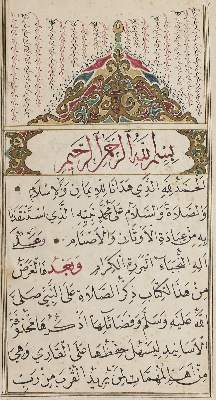 بسم الله الرحمن الرحيم
الحمد لله الذي هدانا للايمان والاسلام
والصلاة والسلام على محمد نبيه الذي استنقذنا
به من عبادة الاوثان والاصنام وعلى
اله النجباء البررة الكرام وبعد فالغرض
من هذا الكتاب ذكر الصلاة على النبي صلى
الله عليه وسلم وفضائلها اذكرها محذوفة
الاسانيد ليسهل حفظها على القاري وهي
من اهم المهمات لمن يريد القرب من رب